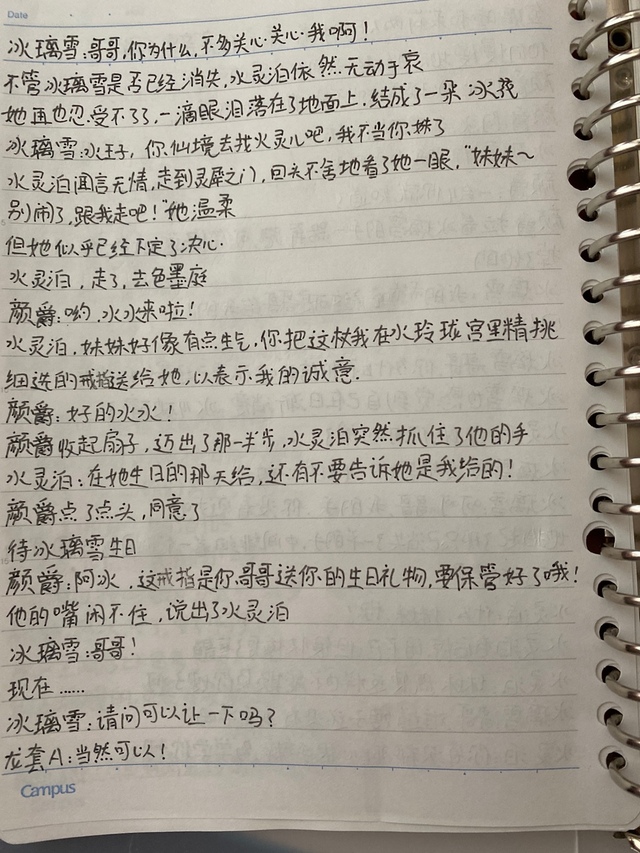 Date
冰璃雪:哥哥,你为什么,不多关心关心我啊!
不管冰璃雪是否已经消失,水灵泊依然无动于衷
她再也忍受不了了,一滴眼泪落在了地面上,结成了一朵冰花
冰璃雪:水王子,你仙境去找火灵儿吧,我不当你妹了
水灵泊闻言无情,走到灵犀之门,回头不舍地看了她一眼,"妹妹~
别闹了,跟我走吧!"她温柔
但她似乎已经下定了决心.
水灵泊,走了,去色墨庭
颜爵:哟,水水来啦!
水灵泊,妹妹好像有点生气,你把这枚我在水玲珑宫里精挑
细选的戒指送给她,以表示我的诚意.
颜爵:好的水水!
颜爵收起扇子,迈出了那一半步,水灵泊突然抓住了他的手
水灵泊:在她生日的那天给,还有不要告诉她是我给的!
颜爵点了点头,同意了
待冰璃雪生日
颜爵:阿冰,这戒指是你哥哥送你的生日礼物,要保管好了哦!
他的嘴闲不住,说出了水灵泊
冰璃雪:哥哥!
现在……
冰璃雪:请问可以让一下吗?
龙套A:当然可以!
Campus